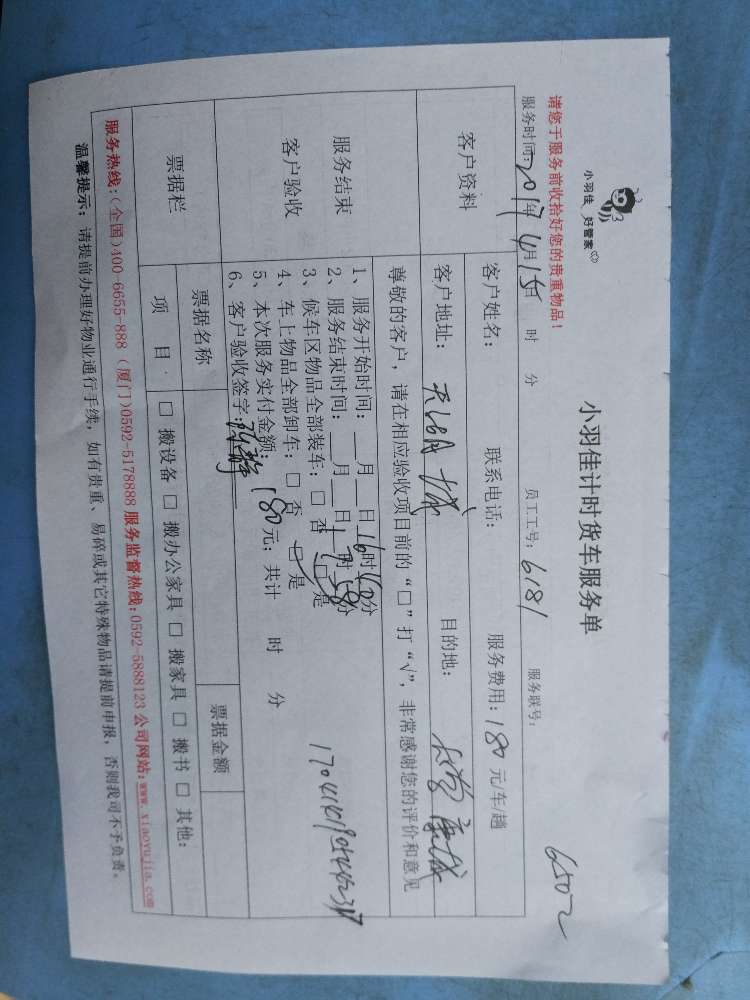 小羽佳 好管家
小羽佳计时货车服务单
6502
请您于服务前收拾好您的贵重物品！
服务时间：2017年4月15日 时 分 员工工号：6181 服务联号：
客户资料
客户姓名： 联系电话： 服务费用：180元/车/趟
客户地址： 天湖城 目的地：
尊敬的客户，请在相应验收项目前的“□”打“√”，非常感谢您的评价和意见
服务结束
客户验收
1、服务开始时间：__月__日16时10分
2、服务结束时间：__月__日17时58分
3、候车区物品全部装车：□ 否 □ 是
4、车上物品全部卸车：□ 否 □ 是
5、本次服务实付金额：180元；共计 时 分
6、客户验收签字：
票据栏
票据名称 票据金额
项 目 □ 搬设备 □ 搬办公家具 □ 搬家具 □ 搬书 □ 其他：
服务热线：(全国)400-6655-888 (厦门)0592-5178888 服务监督热线：0592-5888123 公司网站：www.xiaoyujia.com
温馨提示：请提前办理好物业通行手续，如有贵重、易碎或其它特殊物品请提前申报，否则我司不予负责。